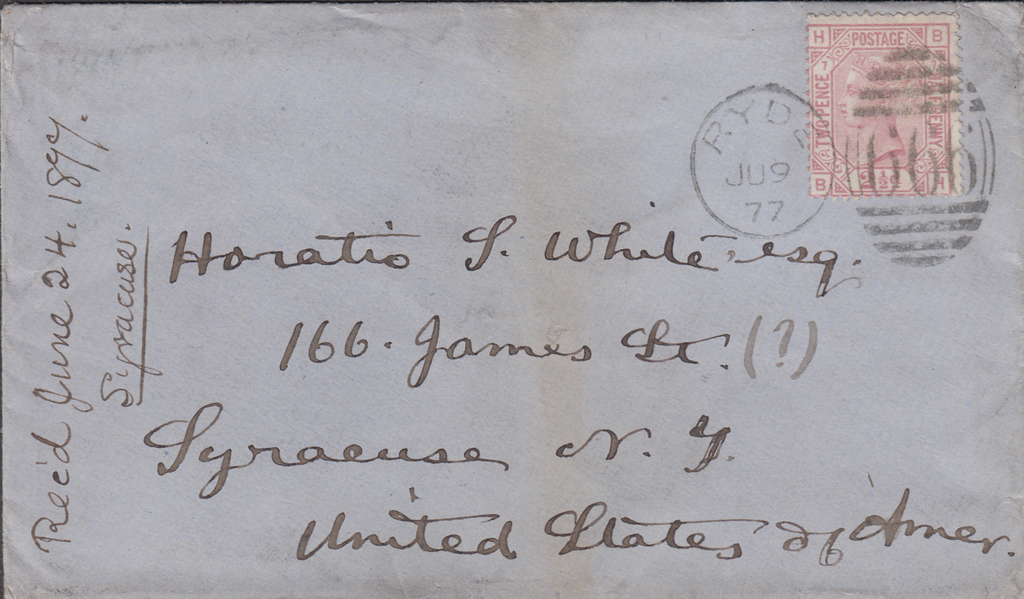 H POSTAGE B
7
TWO PENCE
PENNY
B 1/2 H
RYD
JU 9
77
666
Horatio S. White esq.
166. James St. (?)
Syracuse N. Y.
United States of Amer.
Rec'd June 24. 1877.
Syracuse.